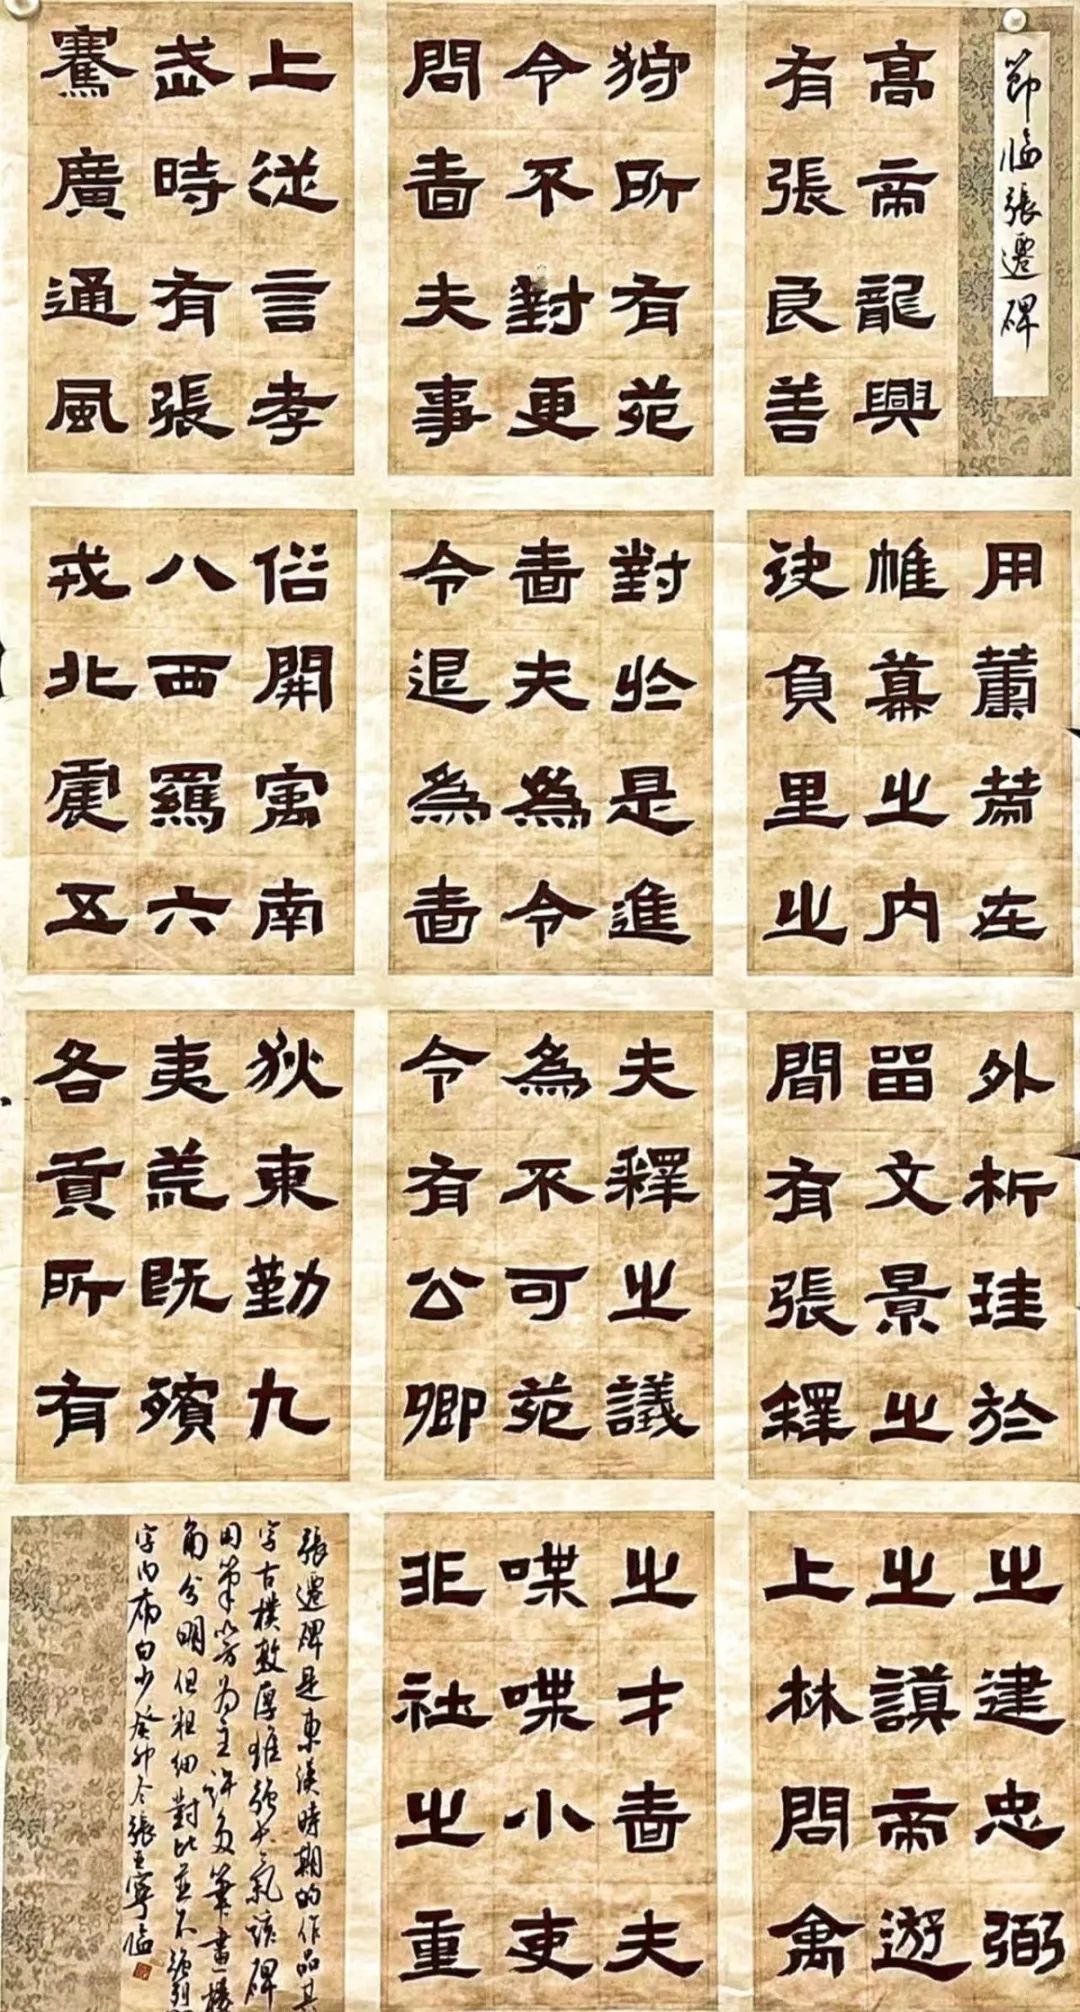 節臨張遷碑
高帝龍興
有張良善
用籌策在
帷幕之內
決負里之
外析珪於
留文景之
間有張釋
之建忠弼
之謨帝遊
上林問禽
狩所有苑
令不對更
問嗇夫事
對於是進
嗇夫為令
令退為嗇
夫釋之議
為不可苑
令有公卿
之才嗇夫
喋喋小吏
非社之重
上從言孝
武時有張
騫廣通風
俗開寓南
八西羈六
戎北震五
狄東勤九
夷荒既殯
各貢所有
張遷碑是東漢時期的作品其
字古樸敦厚雄強大氣該碑
用筆以方為主許多筆畫棱
角分明但粗細對比並不強烈
字內布白少癸卯冬張亞寧臨